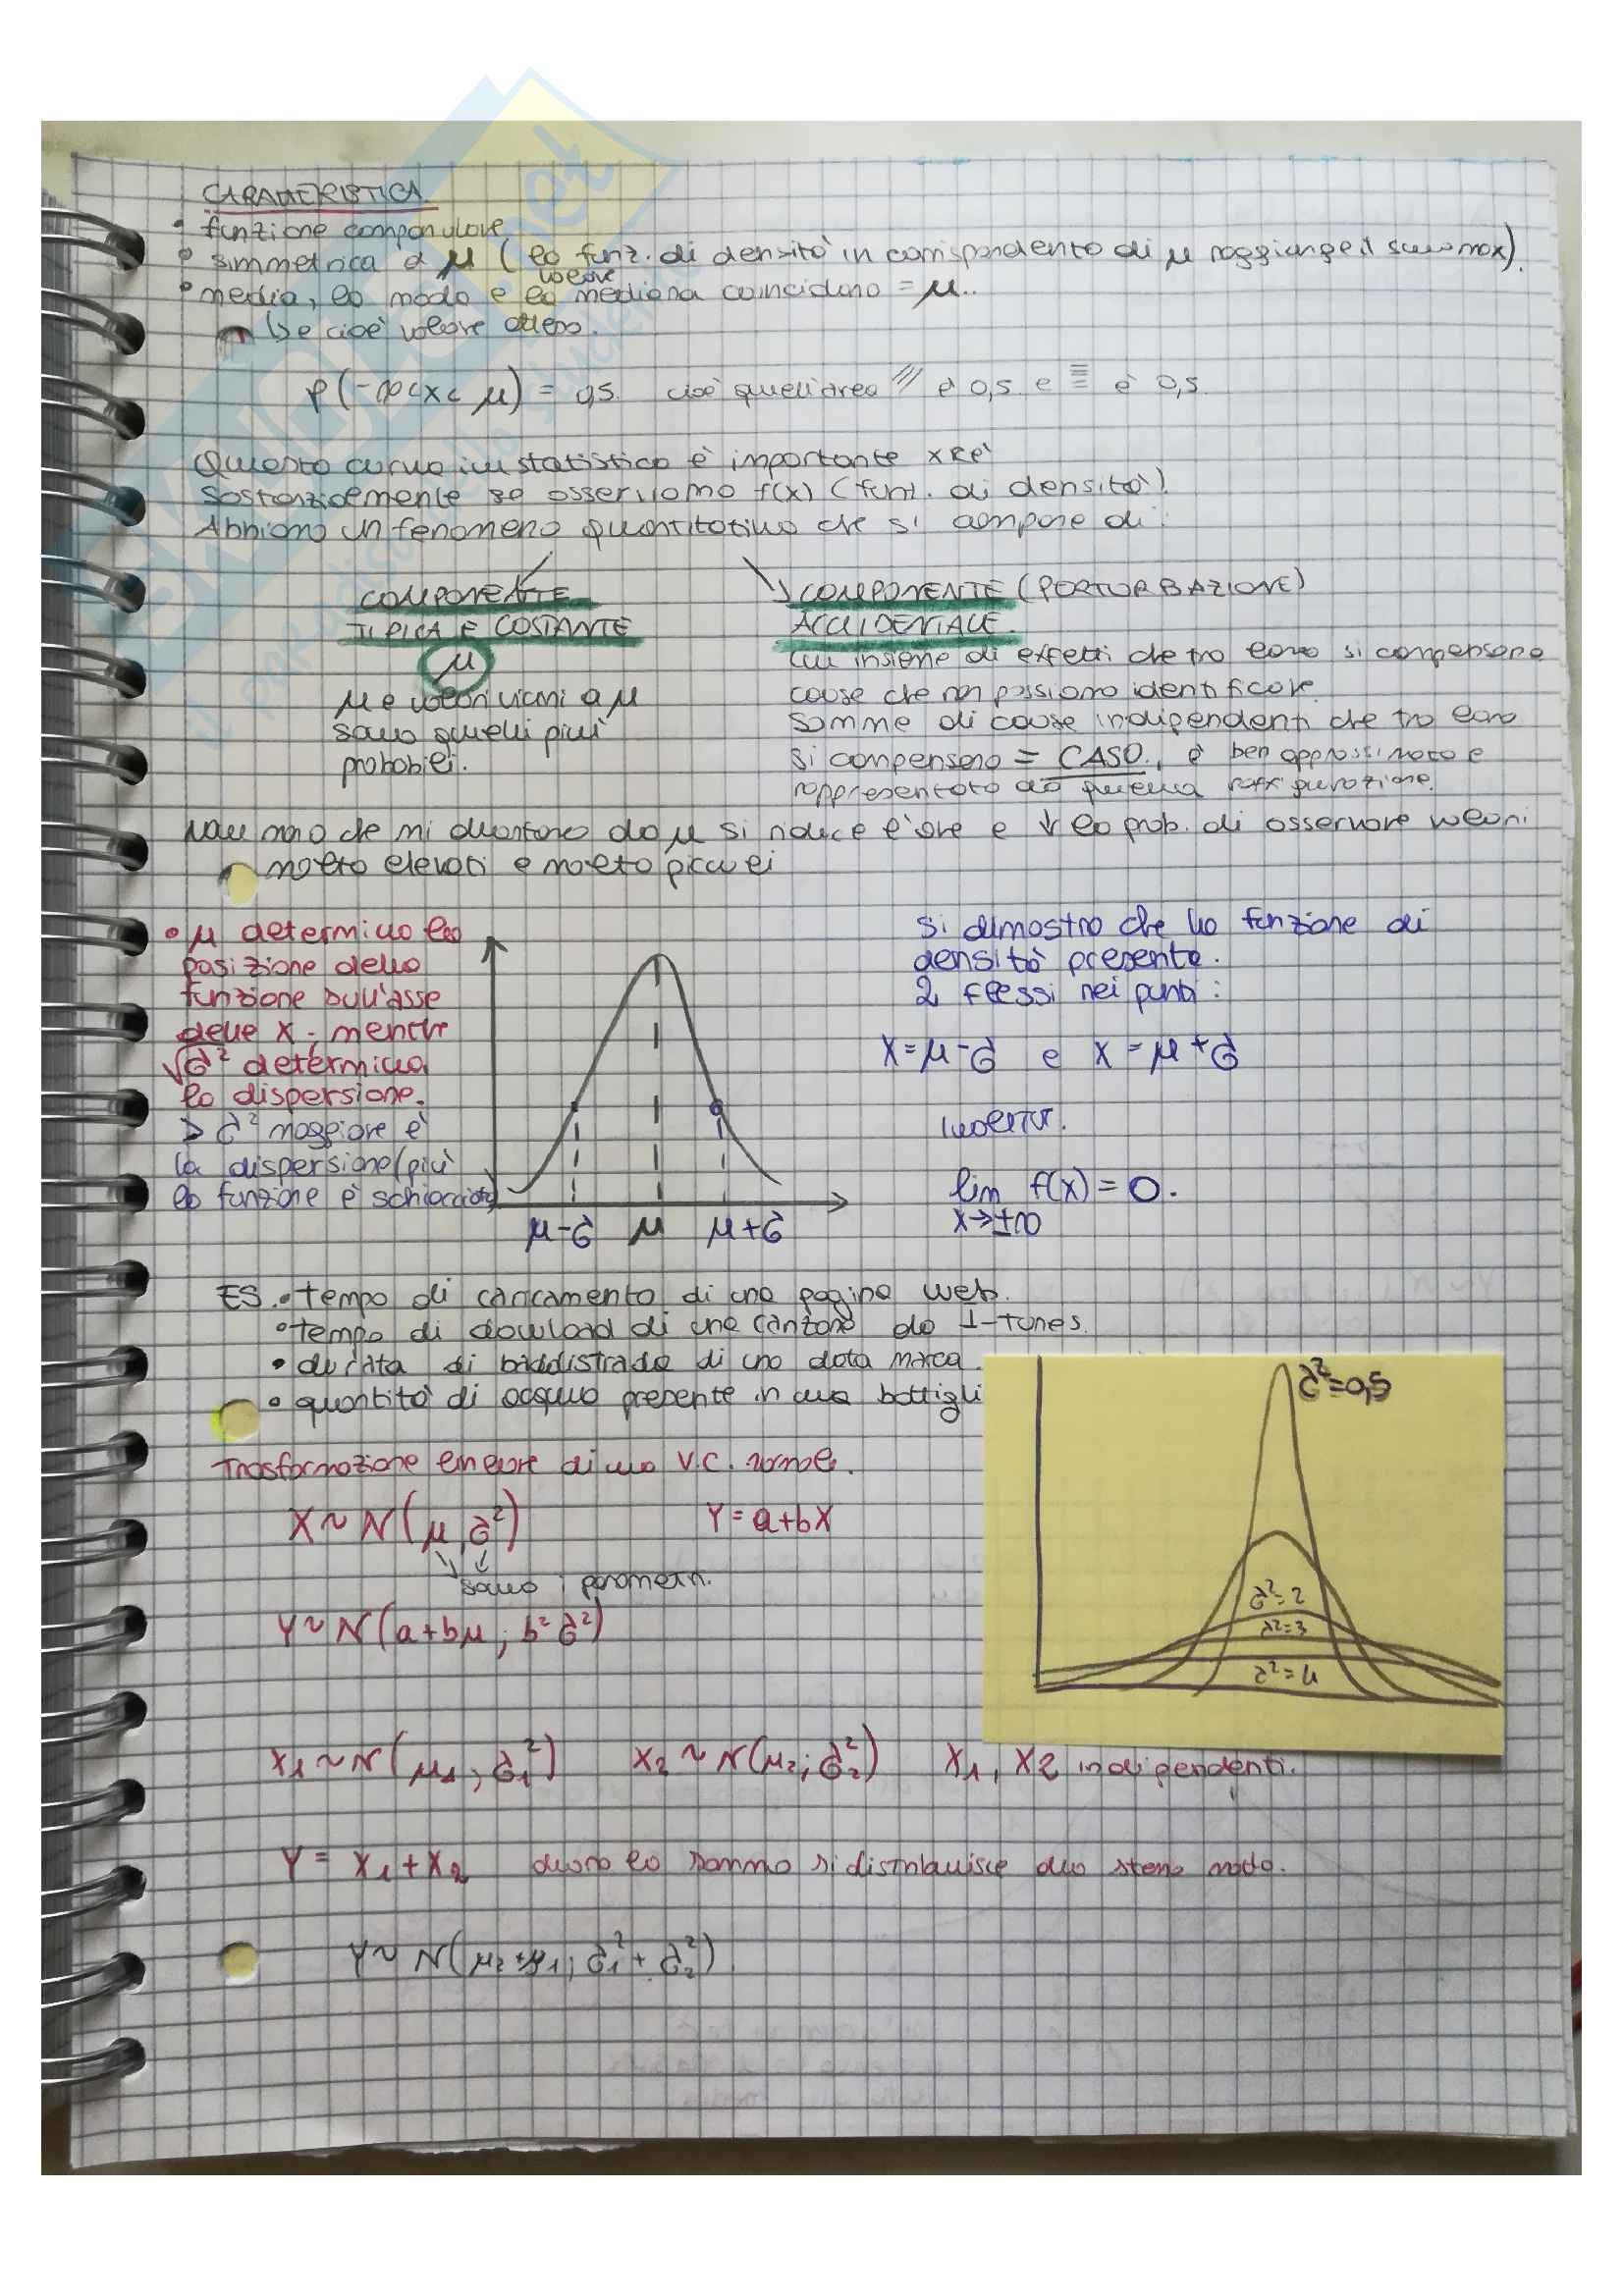 CARATTERISTICA
• funzione campanulare
• simmetrica a μ (la funz. di densità in corrispondenza di μ raggiunge il suo max).
• media, la moda e la mediana coincidono = μ..
valore
cioè valore atteso.
P(-∞<x< μ) = 0,5. cioè quell'area /// è 0,5 e ≡ è 0,5.
Questa curva in statistica è importante xké
sostanzialmente se osserviamo f(x) (funz. di densità)
Abbiamo un fenomeno quantitativo che si compone di:
COMPONENTE
TIPICA E COSTANTE
μ
μ e valori vicini a μ
sono quelli più
probabili.
COMPONENTE (PORTURBAZIONE)
ACCIDENTALE.
un insieme di effetti che tra loro si compensano
cause che non possiamo identificare
somme di cause indipendenti che tra loro
si compensano = CASO., è ben approssimato e
rappresentato da questa raffigurazione.
man mano che mi allontano da μ si riduce l'are e ↓ la prob. di osservare valori
molto elevati e molto piccoli
• μ determina la
posizione della
funzione sull'asse
delle x; mentre
√σ² determina
la dispersione.
> σ² maggiore è
la dispersione (più
la funzione è schiacciata)
μ-σ μ μ+σ
Si dimostra che la funzione di
densità presenta.
2 flessi nei punti:
x=μ-σ e x=μ+σ
Inoltre.
lim f(x)=0.
x→±∞
ES. • tempo di caricamento di una pagina web.
• tempo di dowload di una canzone da I-tunes.
• durata di battistrada di una data marca.
• quantità di acqua presente in una bottigli
σ²=0,5
σ²=2
σ²=3
σ²=4
Trasformazione lineare di una V.C. normale.
X~N(μ,σ²) Y=a+bX
sono i parametri.
Y~N(a+bμ; b²σ²)
X1~N(μ1; σ1²) X2~N(μ2; σ2²) X1, X2 indipendenti.
Y = X1+X2 allora la somma si distribuisce allo stesso modo.
Y~N(μ2+μ1; σ1²+σ2²)